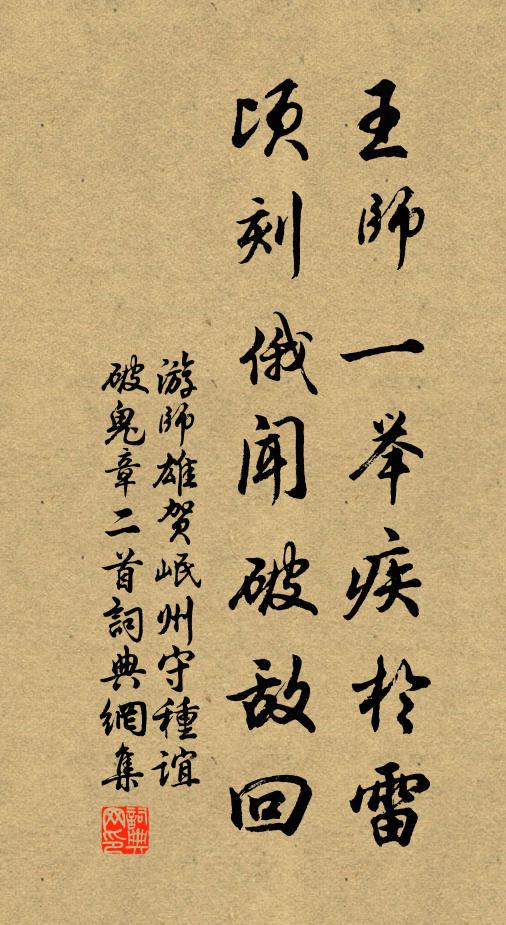 王師一举疾於雷
頃刻俄闻破敌回
游師雄贺岷州守種谊
破鬼章二首詞典網集
詞典網印